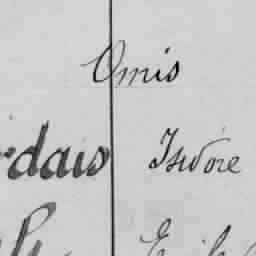 Omis
rdais Isidore